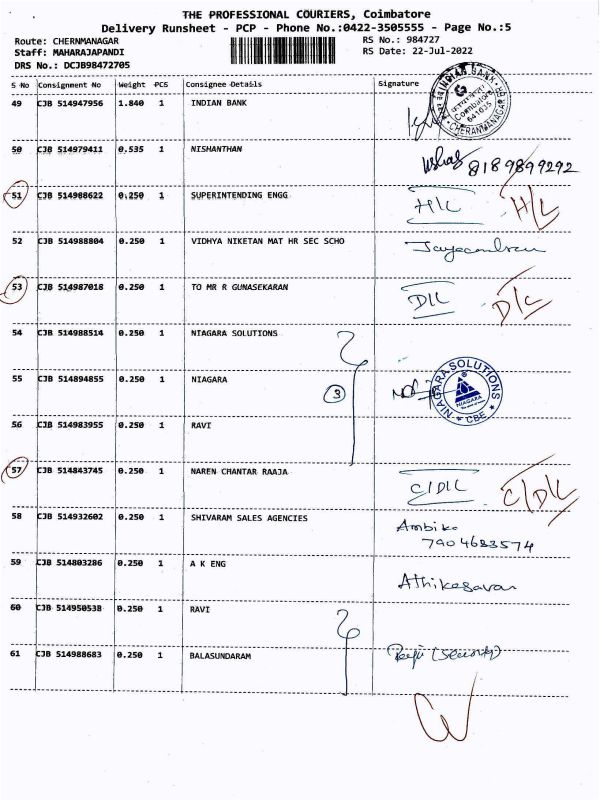 THE PROFESSIONAL COURIERS, Coimbatore
Delivery Runsheet - PCP - Phone No.:0422-3505555 - Page No.:5
Route: CHERNMANAGAR RS No.: 984727
Staff: MAHARAJAPANDI RS Date: 22-Jul-2022
DRS No.: DCJB98472705
S No Consignment No Weight PCS Consignee Details Signature
49 CJB 514947956 1.840 1 INDIAN BANK
INDIAN BANK
Coimbatore
641035
CHERANMANAGAR
50 CJB 514979411 0.535 1 NISHANTHAN 8189899292
51 CJB 514988622 0.250 1 SUPERINTENDING ENGG H/L H/L
52 CJB 514988804 0.250 1 VIDHYA NIKETAN MAT HR SEC SCHO
53 CJB 514987018 0.250 1 TO MR R GUNASEKARAN D/L D/L
54 CJB 514988514 0.250 1 NIAGARA SOLUTIONS
55 CJB 514894855 0.250 1 NIAGARA 3
NIAGARA SOLUTIONS
NIAGARA
* CBE *
56 CJB 514983955 0.250 1 RAVI
57 CJB 514843745 0.250 1 NAREN CHANTAR RAAJA C/D/L C/D/L
58 CJB 514932602 0.250 1 SHIVARAM SALES AGENCIES Ambika
7904683574
59 CJB 514803286 0.250 1 A K ENG Athikesavan
60 CJB 514950538 0.250 1 RAVI
61 CJB 514988683 0.250 1 BALASUNDARAM (security)